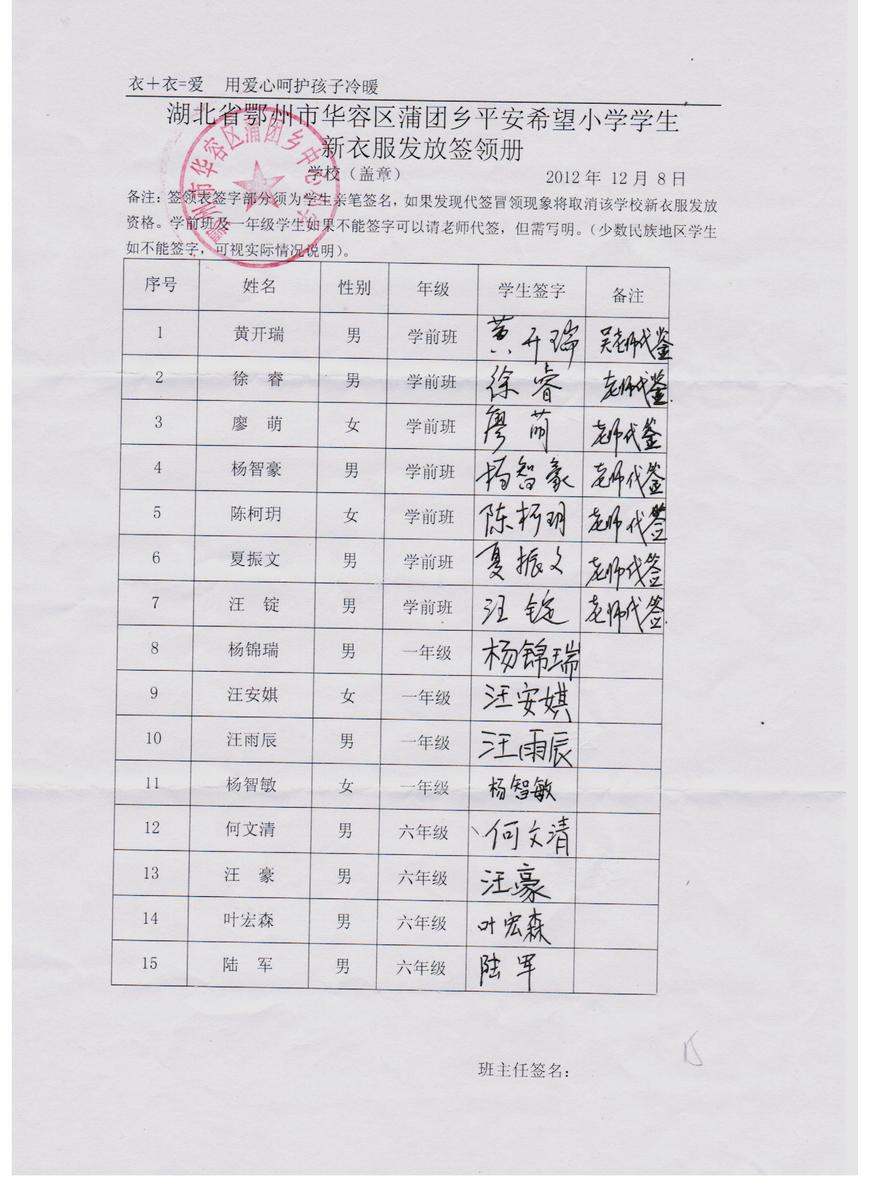 衣＋衣=爱 用爱心呵护孩子冷暖
湖北省鄂州市华容区蒲团乡平安希望小学学生
新衣服发放签领册
学校（盖章） 2012 年 12 月 8 日
鄂州市华容区蒲团乡中心小学
备注：签领表签字部分须为学生亲笔签名，如果发现代签冒领现象将取消该学校新衣服发放
资格。学前班及一年级学生如果不能签字可以请老师代签，但需写明。（少数民族地区学生
如不能签字，可视实际情况说明）。
序号 姓名 性别 年级 学生签字 备注
1 黄开瑞 男 学前班 黄开瑞 吴老师代签
2 徐 睿 男 学前班 徐睿 老师代签.
3 廖 萌 女 学前班 廖萌 老师代签
4 杨智豪 男 学前班 杨智豪 老师代签
5 陈柯玥 女 学前班 陈柯玥 老师代签
6 夏振文 男 学前班 夏振文 老师代签
7 汪 锭 男 学前班 汪锭 老师代签.
8 杨锦瑞 男 一年级 杨锦瑞
9 汪安娸 女 一年级 汪安娸
10 汪雨辰 男 一年级 汪雨辰
11 杨智敏 女 一年级 杨智敏
12 何文清 男 六年级 何文清
13 汪 豪 男 六年级 汪豪
14 叶宏森 男 六年级 叶宏森
15 陆 军 男 六年级 陆军
班主任签名：